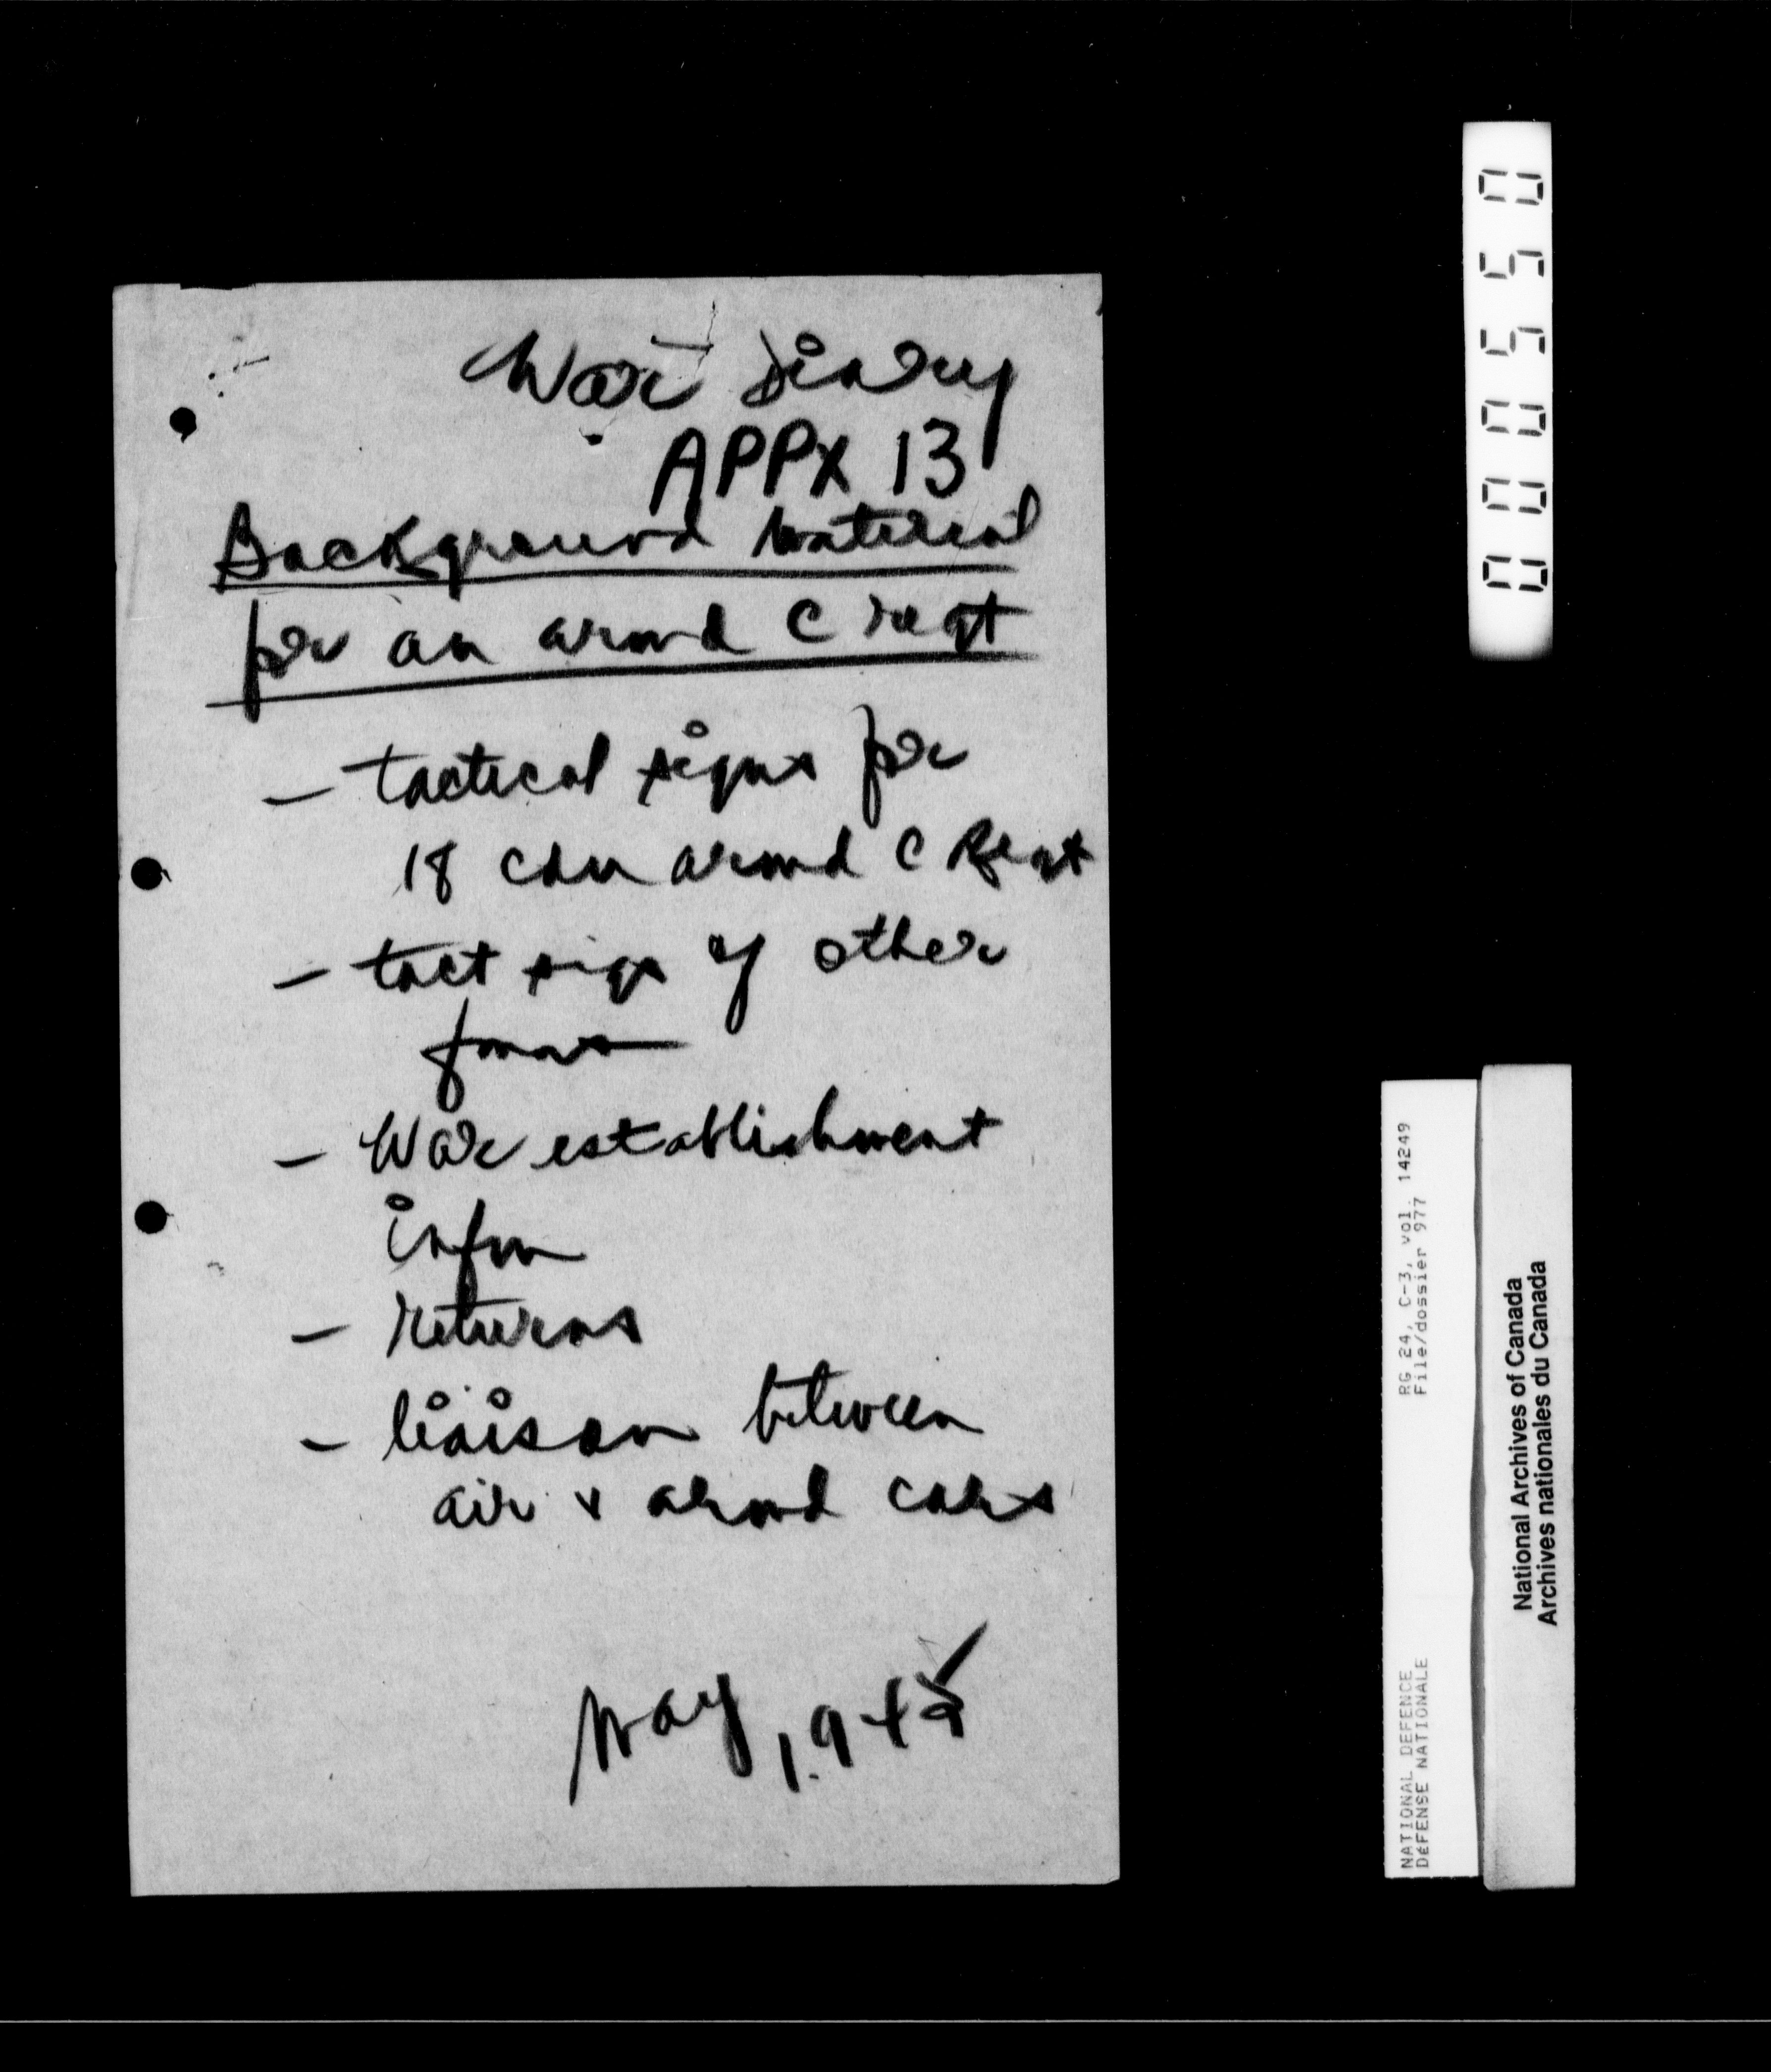 War Diary
APPX 13
Background material
for an armd C regt
- tactical signs for
18 cdn armd C Regt
- tact sigs of other
fmns
- War establishment
infm
- returns
- liaison between
air & armd cars
May, 1945
000550
RG 24, C-3, vol. 14249
File/dossier 977
NATIONAL DEFENCE
DÉFENSE NATIONALE
National Archives of Canada
Archives nationales du Canada